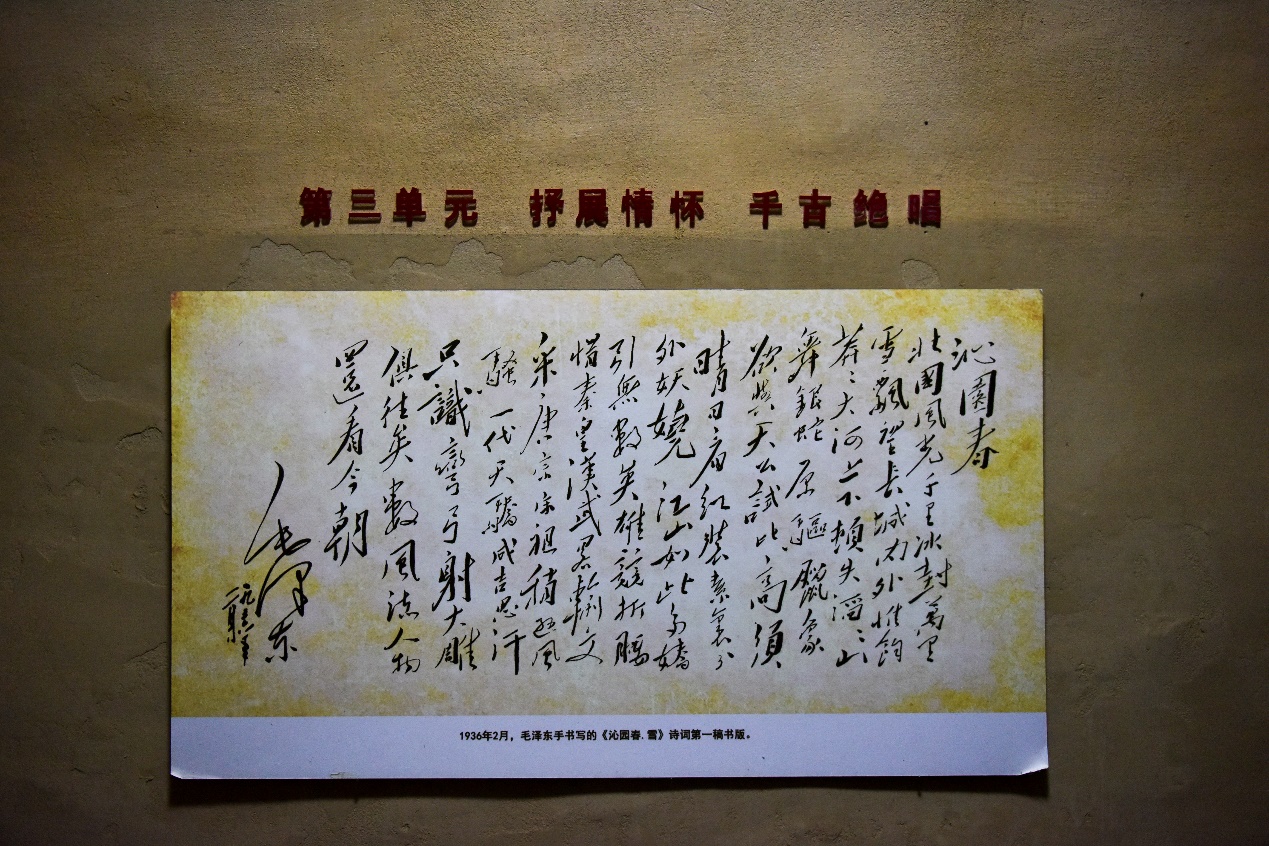 第三单元 抒展情怀 千古绝唱
沁園春
北國風光千里冰封萬里
雪飄望長城内外惟餘
莽〻大河上下頓失滔〻山
舞銀蛇原驅臘象
欲與天公試比高須
晴日看紅裝素裹分
外妖嬈江山如此多嬌
引無數英雄競折腰
惜秦皇漢武略輸文
采唐宗宋祖稍遜風
騷一代天驕成吉思汗
只識彎弓射大雕
俱往矣數風流人物
還看今朝
毛澤东
1936年2月，毛泽东手书写的《沁园春.雪》诗词第一稿书版。